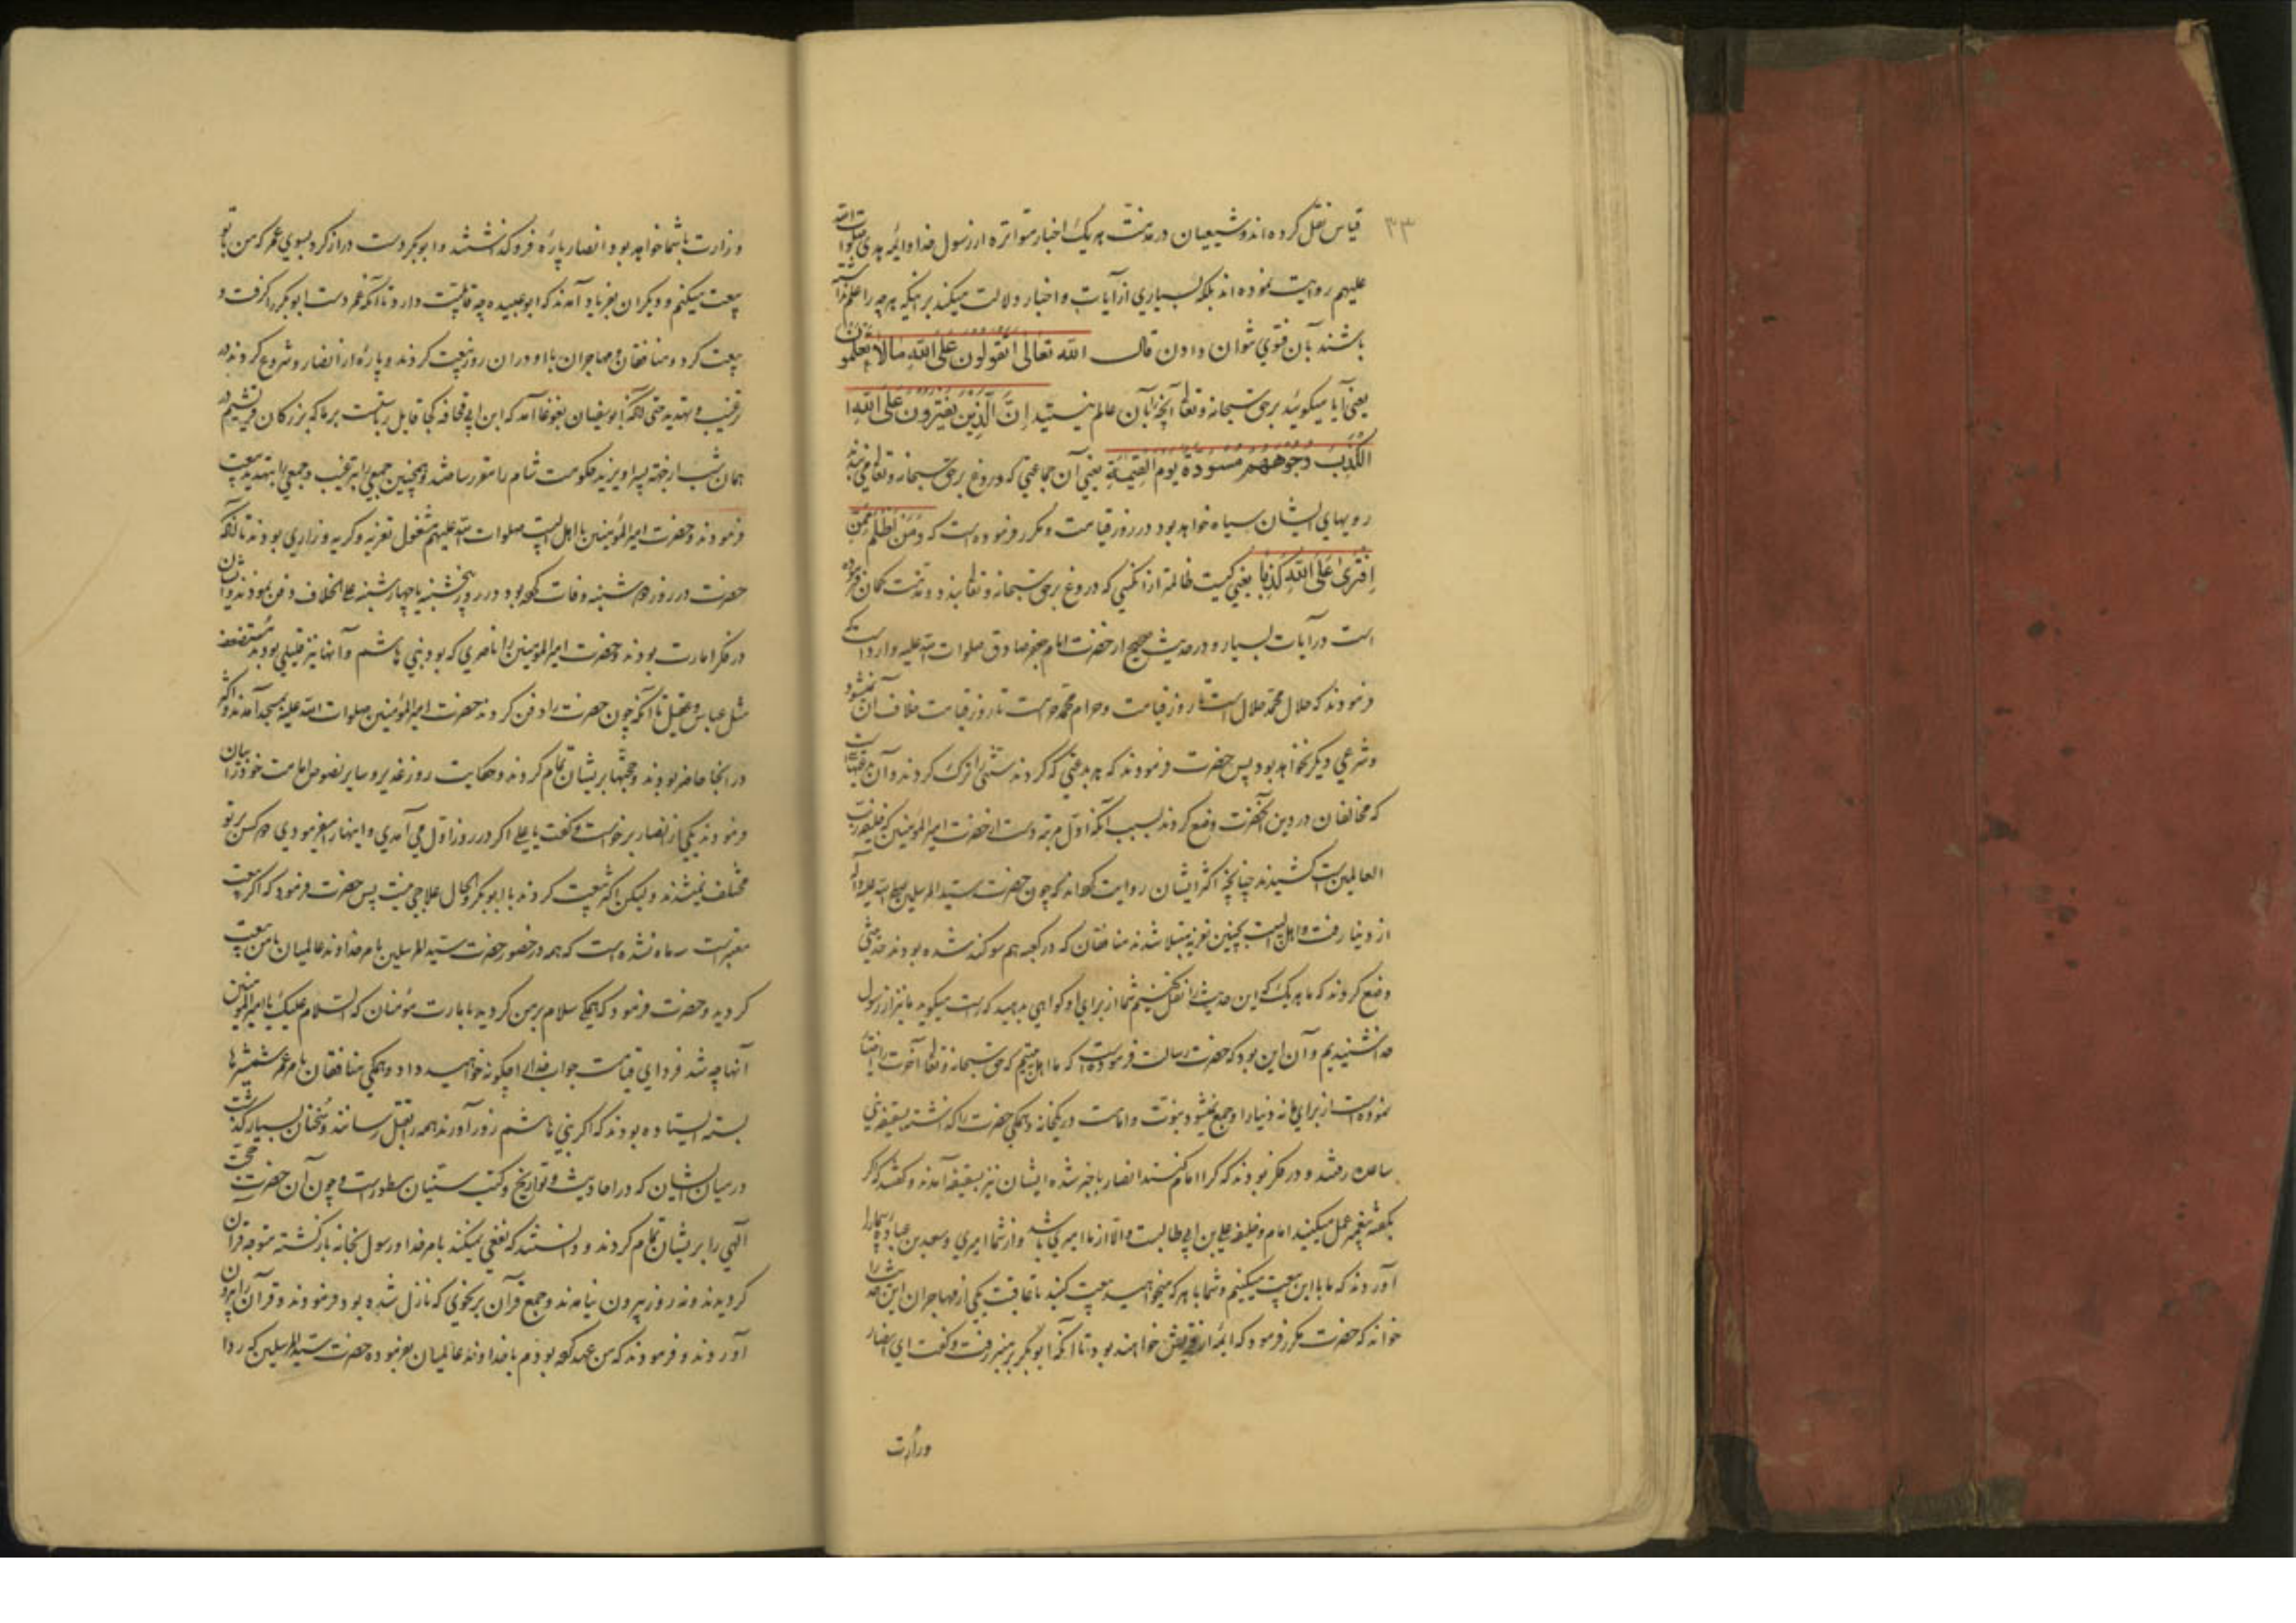 ۳۳
قیاس نقل کرده‌اند و شیعیان در مذمت هر یک اخبار متواتره از رسول خدا و ائمه هدی صلوات الله
علیهم روایت نموده‌اند بلکه بسیاری از آیات و اخبار دلالت میکند بر اینکه هر چه را علم نداشته
باشند بآن فتوی نتوان دادن قال الله تعالی اتقولون علی الله مالا تعلمون
یعنی آیا میگوئید بر حق سبحانه و تعالی آنچه بآن عالم نیستید ان الذین یفترون علی الله
الکذب وجوههم مسودة یوم القیمة یعنی آن جماعتی که دروغ بر حق سبحانه و تعالی می بندند
رویهای ایشان سیاه خواهد بود در روز قیامت و مکرر فرموده است که و من اظلم ممن
افتری علی الله کذبا یعنی کیست ظالمتر از آنکسی که دروغ بر حق سبحانه و تعالی بندد و مذمت کمان فرموده
است در آیات بسیار و در حدیث صحیح از حضرت امام جعفر صادق صلوات الله علیه وارد است که
فرمودند که حلال محمد حلال است تا روز قیامت و حرام محمد حرامست تا روز قیامت خلاف آن نمیشود
و شرعی دیگر نخواهد بود پس حضرت فرمودند که هر بدعتی که کردند سنتی را ترک کردند و آن
که مخالفان در دین آنحضرت وضع کردند بسبب آنکه اول مرتبه دست از حضرت امیر المؤمنین که خلیفه رب
العالمین است کشیدند چنانچه اکثر ایشان روایت کرده‌اند که چون حضرت سید المرسلین صلی الله علیه و آله
از دنیا رفت و اهل بیت بچنین تعزیه مبتلا شدند منافقان که در کعبه هم سوکند شده بودند حدیثی
وضع کردند که ما هر یک که این حدیث را نقل کنیم شما از برای او کواهی بدهید که راست میگوید ما نیز از رسول
خدا شنیدیم و آن این بود که حضرت رسالت فرموده است که ما اهل بیتیم که حق سبحانه و تعالی آخرت را اختیار
نموده است از برای ما نه دنیا را و جمع نمیشود نبوت و امامت در یکخانه و همکی حضرت را کذاشته بسقیفه بنی
ساعده رفتند و در فکر بودند که کرا امام کنند انصار با خبر شده ایشان نیز بسقیفه آمدند و کفتند که اکر
بکفته پیغمبر عمل میکنید امام و خلیفه علی بن ابی طالبست و الا از ما امیری باشد و از شما امیری و سعد بن عباده
آوردند که ما با این بیعت میکنیم و شما با هر که میخواهید بیعت کنید تا عاقبت یکی از مهاجران این حدیث را
خواند که حضرت مکرر فرمود که ائمه از قریش خواهند بود تا آنکه ابوبکر بر منبر رفت و کفت ای انصار
وزارت
وزارت با شما خواهد بود و انصار پاره فرو کذاشتند و ابوبکر دست دراز کرد بسوی عمر که من با تو
بیعت میکنم و دیکران بفریاد آمدند که ابوعبیده چه قابلیت دارد تا آنکه عمر دست ابوبکر را کرفت و
بیعت کرد و منافقان و مهاجران با او در آن روز بیعت کردند و پاره از انصار و شروع کردند در
ترغیب و تهدید حتی آنکه ابوسفیان بغوغا آمد که ابن ابی قحافه کجا قابل ریاستست بر ما که بزرکان قریشیم در
همان شب از جهة پسر او یزید حکومت شام را مقرر ساختند و همچنین جمعی را بترغیب و جمعی را بتهدید بیعت
فرمودند و حضرت امیر المؤمنین با اهل البیت صلوات الله علیهم مشغول تعزیه و کریه و زاری بودند تا آنکه
حضرت در روز دوشنبه وفات کرده بود در روز پنجشنبه یا چهارشنبه علی الخلاف دفن نمودند و ایشان
در فکر امارت بودند و حضرت امیر المؤمنین را ناصری که بود بنی هاشم و آنها نیز قلیلی بودند مستضعف
مثل عباس و عقیل تا آنکه چون حضرت را دفن کردند حضرت امیر المؤمنین صلوات الله علیه بمسجد آمدند و اکثر
در آنجا حاضر بودند و حجتها بر ایشان تمام کردند و حکایت روز غدیر و سایر نصوص امامت خود را بیان
فرمودند یکی از انصار برخواست و کفت یا علی اکر در روز اول می آمدی و اینها را میفرمودی دو کس بر تو
مختلف نمیشدند و لیکن اکثر بیعت کردند با ابوبکر و الحال علاجی نیست پس حضرت فرمود که اکر بیعت
معتبر است سه ماه نشده است که همه در حضور حضرت سید المرسلین بامر خداوند عالمیان با من بیعت
کردید و حضرت فرمود که همکی سلام بر من کردید بامارت مؤمنان که السلام علیک یا امیر المؤمنین
آنها چه شد فردای قیامت جواب خدا را چکونه خواهید داد و همکی منافقان بامر عمر شمشیرها
بسته ایستاده بودند که اکر بنی هاشم زور آورند همه را بقتل رسانند و سخنان بسیار کذشت
در میان ایشان که در احادیث و تواریخ و کتب سنیان مسطور است و چون آن حضرت حجت
الهی را بر ایشان تمام کردند و دانستند که نفعی نمیکند بامر خدا و رسول بخانه بازکشته متوجه قرآن
کردیدند و نه روز بیرون نیامدند و جمع قرآن بر نحوی که نازل شده بود فرمودند و قرآن را بیرون
آوردند و فرمودند که من عهد کرده بودم با خداوند عالمیان بفرموده حضرت سید المرسلین که ردا